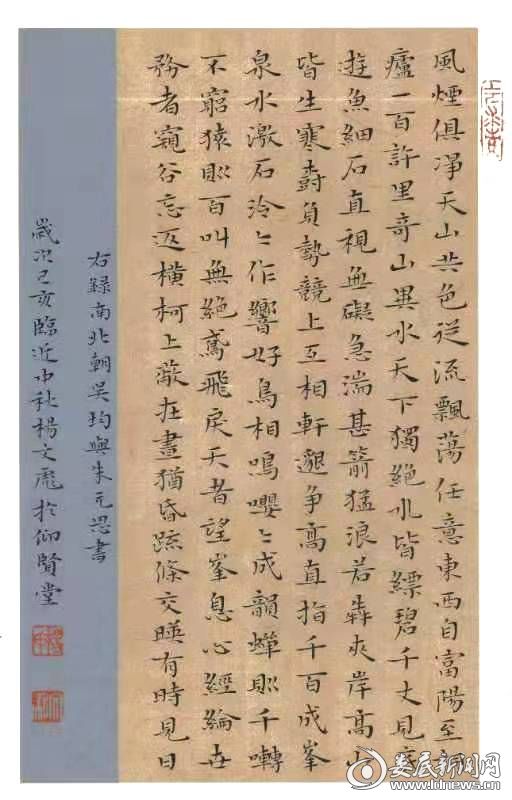 風煙俱淨天山共色從流飄蕩任意東西自富陽至桐
廬一百許里奇山異水天下獨絕水皆縹碧千丈見底
遊魚細石直視無礙急湍甚箭猛浪若犇夾岸高山
皆生寒樹負勢競上互相軒邈爭高直指千百成峯
泉水激石泠〻作響好鳥相鳴嚶〻成韻蟬則千囀
不窮猿則百叫無絕鳶飛戾天者望峯息心經綸世
務者窺谷忘返橫柯上蔽在晝猶昏疏條交暎有時見日
右錄南北朝吳均與朱元思書
歲次己亥臨近中秋楊文彪於仰賢堂
娄底新闻网
www.ldnews.cn